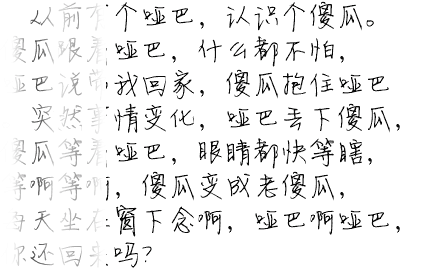 从前有个哑巴，认识个傻瓜。
傻瓜跟着哑巴，什么都不怕，
哑巴说带我回家，傻瓜抱住哑巴
突然事情变化，哑巴丢下傻瓜，
傻瓜等着哑巴，眼睛都快等瞎，
等啊等啊，傻瓜变成老傻瓜，
每天坐在窗下念啊，哑巴啊哑巴，
你还回来吗？